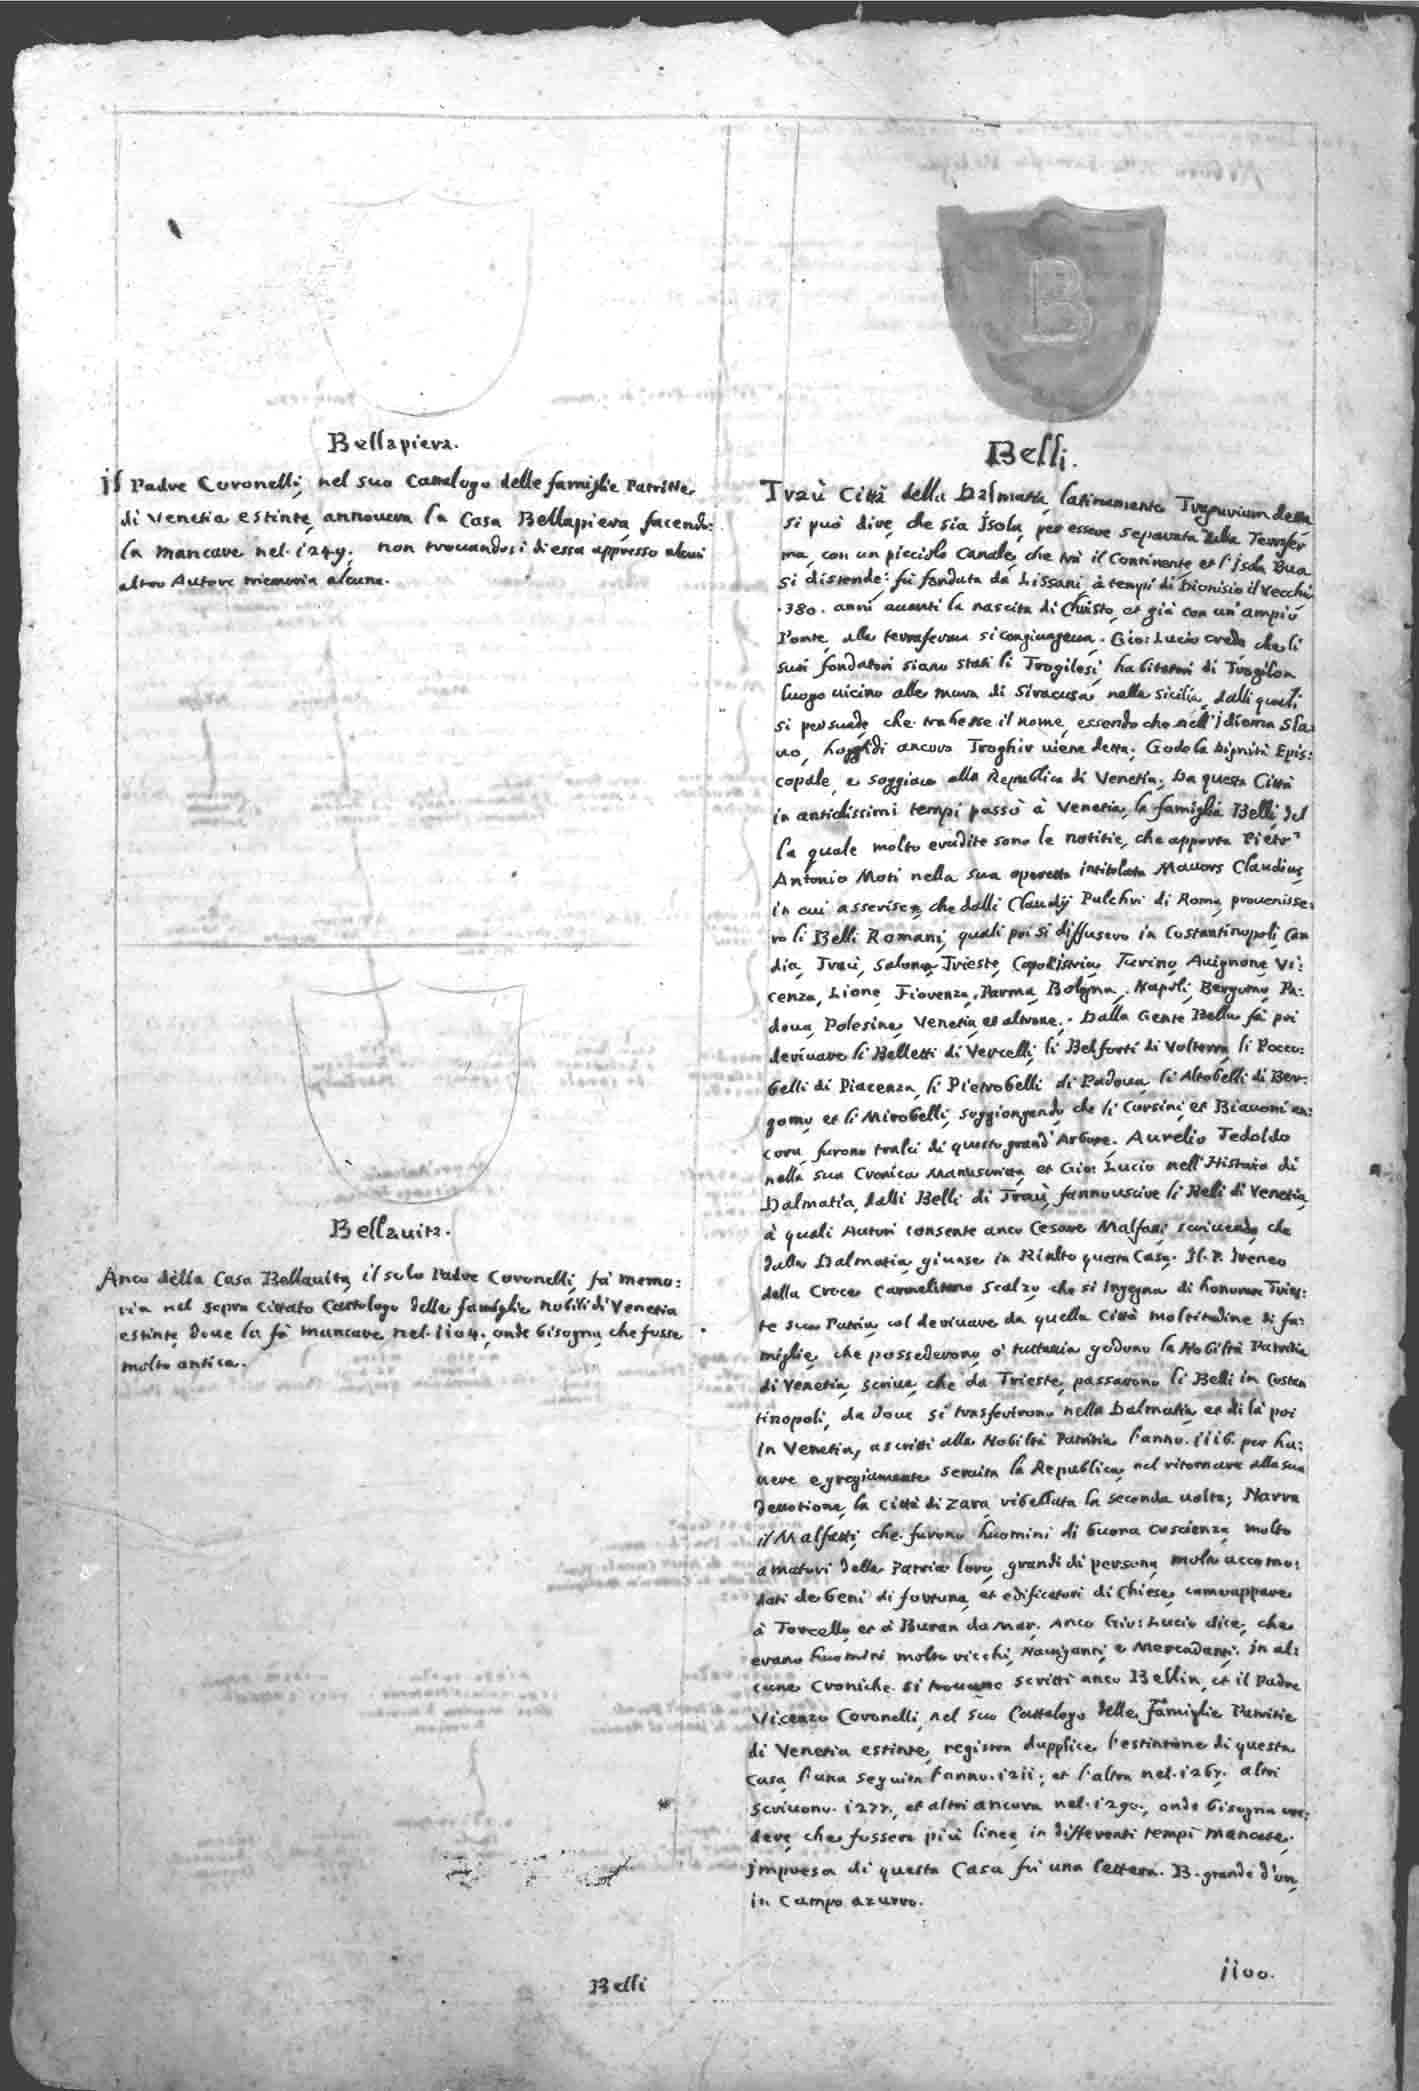 Bellapiera.
il Padre Coronelli, nel suo Cattalogo delle famiglie Patritie
di Venetia estinte, annovera la Casa Bellapiera, facendo:
la mancare nel. 1249. non trovandosi di essa appresso alcun
altro Autore memoria alcuna.
Bellauita.
Anco della Casa Bellauita, il solo Padre Coronelli, fà memo:
ria nel sopra cittato Cattalogo delle famiglie nobili di Venetia
estinte, doue la fà mancare nel. 1104. onde bisogna, che fusse
molto antica.
B
Belli.
Traù Città della Dalmatia, latinamente Tragurium detta
si può dire, che sia Isola, per essere separata dalla Terrafer
ma, con un picciolo Canale, che trà il Continente, et l'Isola Bua
si distende: fù fondata dà Lissani, à tempi di Dionisio il Vecchio
.380. anni auanti la nascita di Christo, et già con un' ampio
Ponte, alla terraferma si congiungeua. Gio: Lucio crede che li
suoi fondatori siano stati li Trogilosi, habitatori di Trogilon
luogo uicino alle mura di Siracusa, nella Sicilia, dalli quali
si persuade, che trahesse il nome, essendo che nell'Idioma Sla
uo, hoggidi ancora Troghir uiene detta. Gode la Dignità Epis:
copale, e soggiace alla Republica di Venetia. Da questa Città
in antichissimi tempi passò à Venetia, la famiglia Belli, del
la quale molto erudite sono le notitie, che apporta Pietr'
Antonio Moti nella sua operetta intitolata Mauors Claudius,
in cui asserisce, che dalli Claudij Pulchri di Roma, prouenisse:
ro li Belli Romani, quali poi si diffusero in Costantinopoli, Can
dia, Traù, Salona, Trieste, Capodistria, Turino, Auignone, Vi:
cenza, Lione, Fiorenza, Parma, Bologna, Napoli, Bergamo, Pa:
doua, Polesine, Venetia, et altroue. Dalla Gente Bella fà poi
deriuare li Belletti di Vercelli, li Belforti di Volterra, li Rocco:
belli di Piacenza, li Pietrobelli di Padoua, li Altobelli di Ber:
gamo, et li Mirobelli, soggiongendo, che li Corsini, et Biauoni an:
cora, furono tralci di questo grand'Arbore. Aurelio Tedoldo
nella sua Cronica Manuscritta, et Gio: Lucio nell'Historia di
Dalmatia, dalli Belli di Traù, fanno uscire li Belli di Venetia,
à quali Autori consente anco Cesare Malfatti, scriuendo, che
dalla Dalmatia, giunse in Rialto questa Casa. Il P. Ireneo
della Croce Carmelitano Scalzo, che si ingegna di honorar Tries:
te sua Patria, col deriuare da quella Città moltitudine di fa:
miglie, che possederono, ò tuttauia godono la Nobiltà Patritia
di Venetia, scriue, che da Trieste, passarono li Belli in Costan
tinopoli, da doue si trasferirono nella Dalmatia, et di là poi
in Venetia, ascritti alla Nobiltà Patritia l'anno. 1116. per ha:
uere egregiamente seruita la Republica, nel ritornare alla sua
deuotione, la Città di Zara, ribellata la seconda uolta; Narra
il Malfatti, che furono huomini di buona coscienza, molto
amatori della Patria loro, grandi di persona, molto accomo:
dati de beni di fortuna, et edificatori di Chiese, come appare
à Torcello, et à Buran da Mar. Anco Gio: Lucio dice, che
erano huomini molto ricchi, Nauiganti, e Mercadanti. in al:
cune Croniche si trouano scritti anco Bellin, et il Padre
Vicenzo Coronelli, nel suo Cattalogo delle Famiglie Patritie
di Venetia estinte, registra dupplice l'estintione di questa
Casa, l'una seguita l'anno. 1211. et l'altra nel. 1267. altri
scriuono. 1277., et altri ancora nel. 1290., onde bisogna cre:
dere, che fussero più linee, in differenti tempi mancate.
Impresa di questa Casa fù una lettera. B. grande d'oro,
in Campo azurro.
1100.
Belli